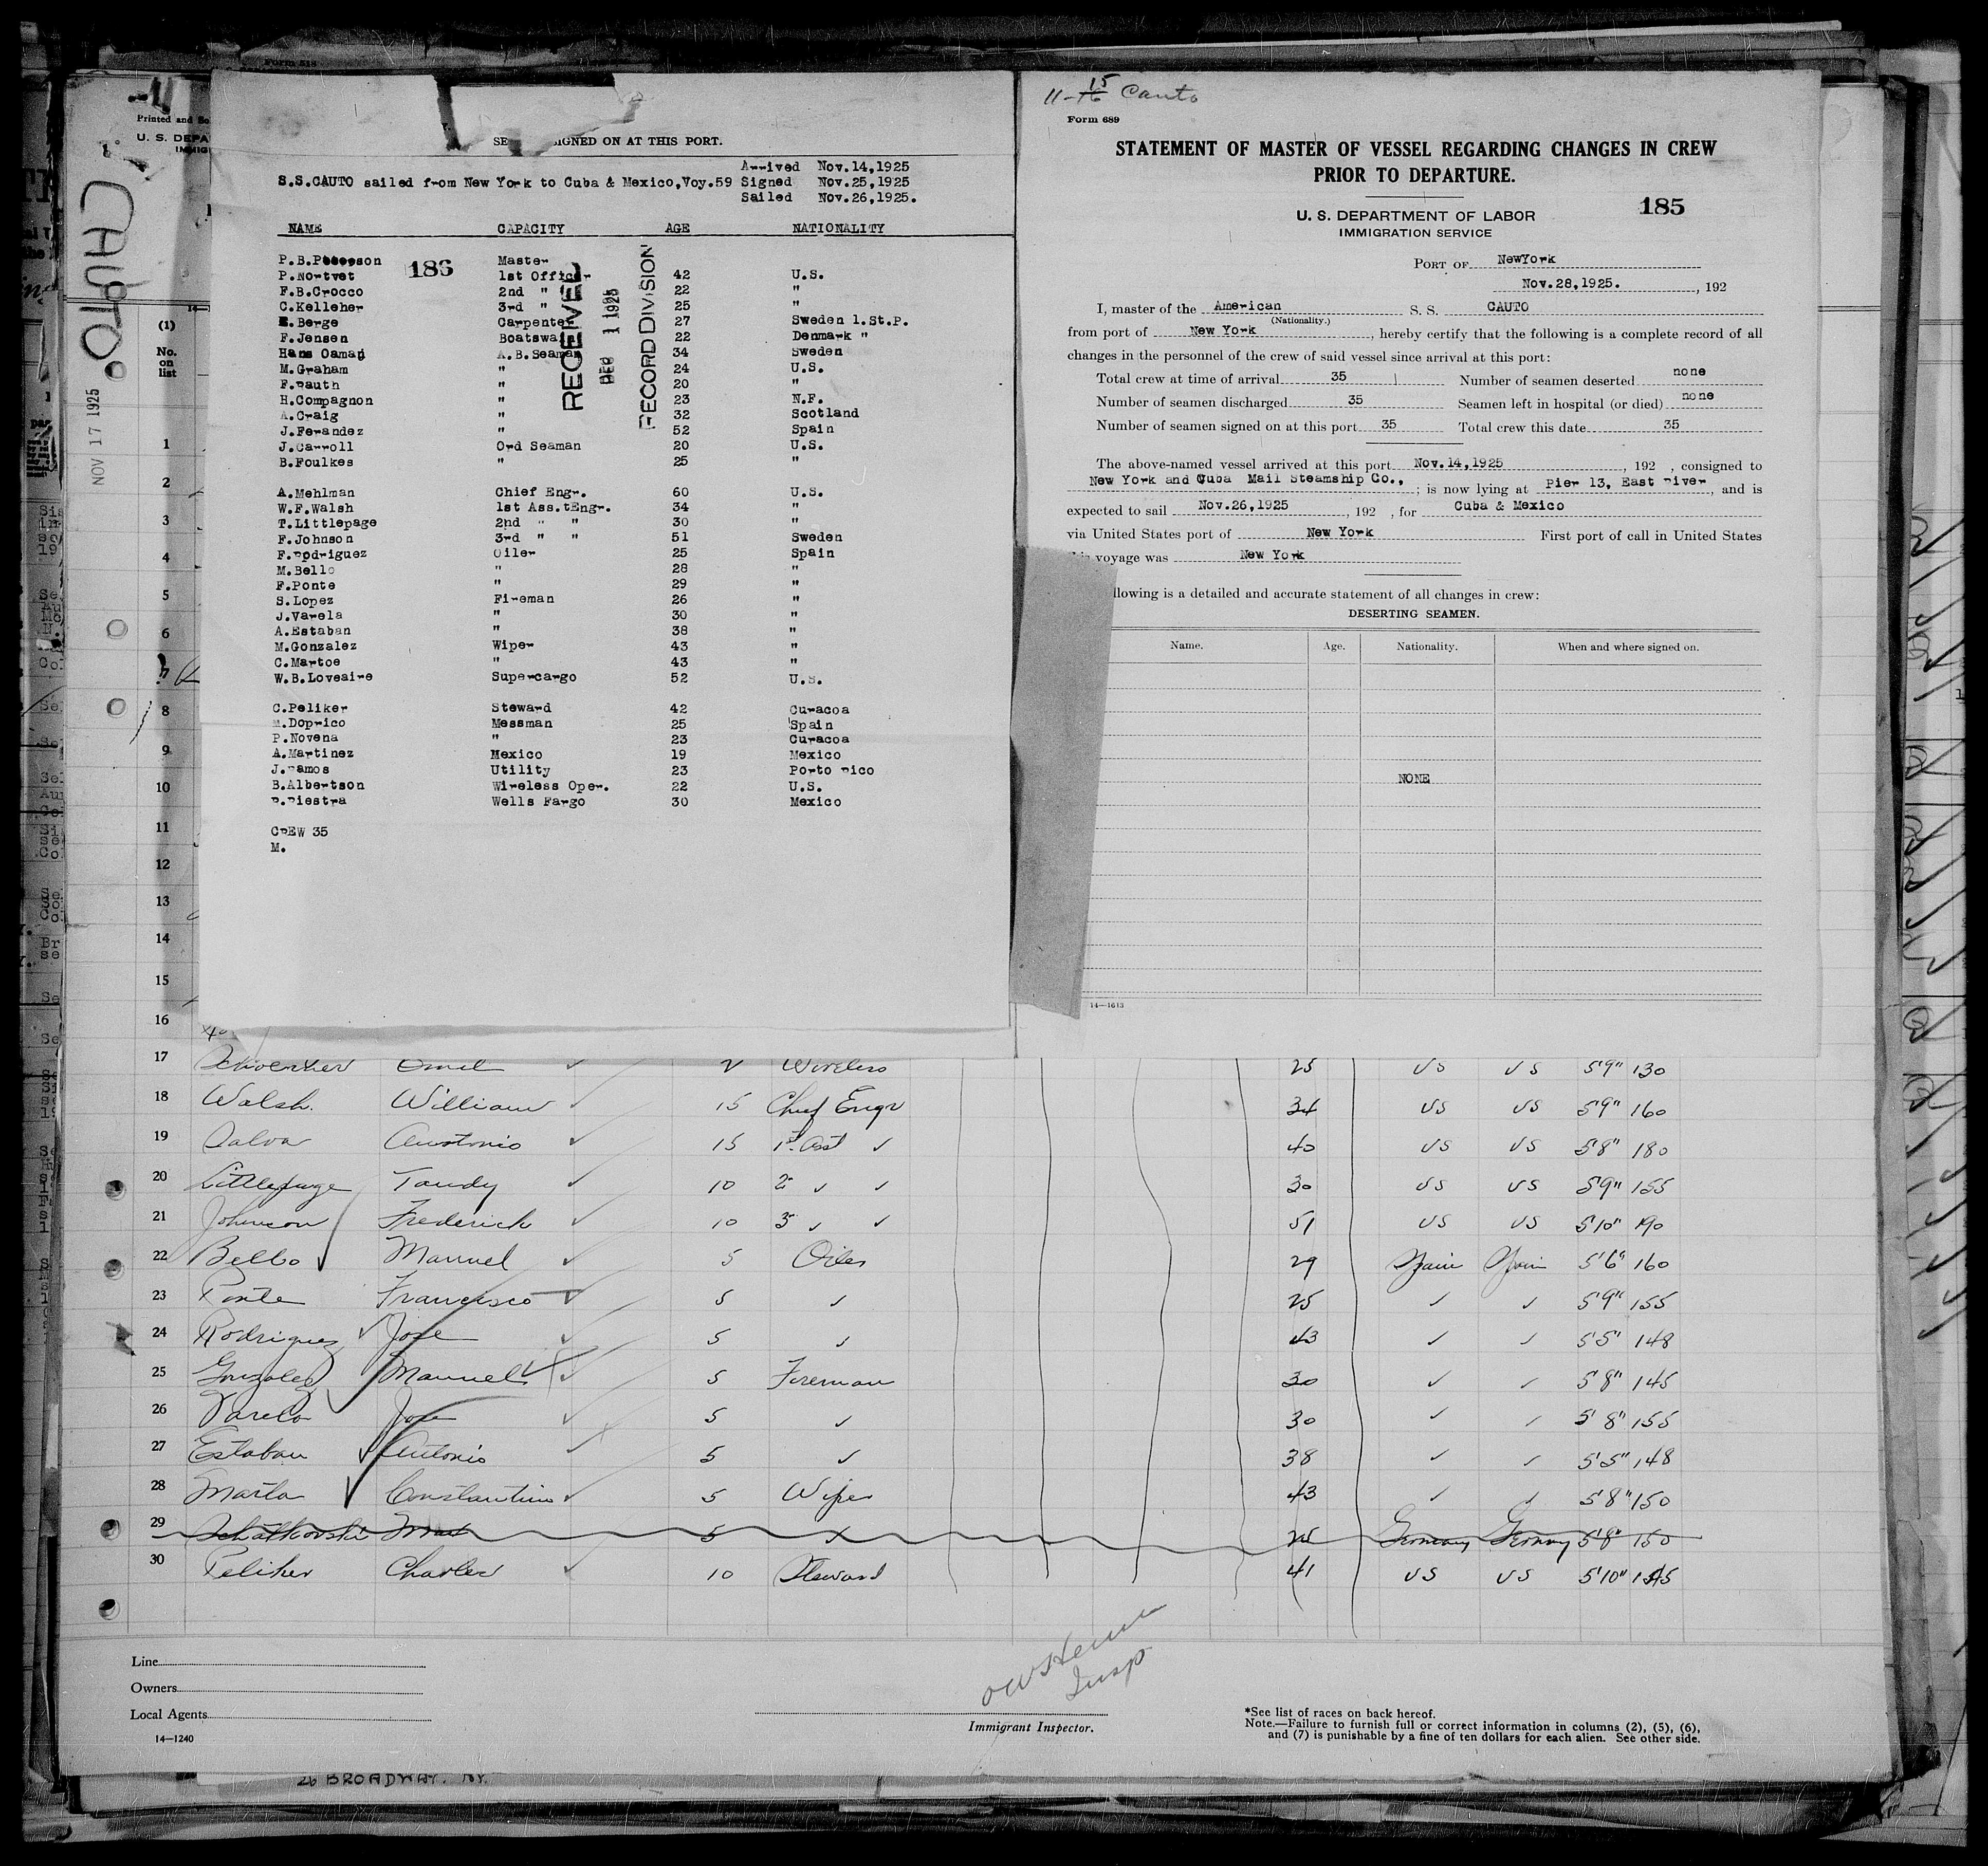 CAUTO
NOV 17 1925
Printed and So
U. S. DEPA
IMMIG
(1)
No.
on
list
SE IGNED ON AT THIS PORT.
Arrived Nov.14,1925
S.S.CAUTO sailed from New York to Cuba & Mexico,Voy.59 Signed Nov.25,1925
Sailed Nov.26,1925.
NAME CAPACITY AGE NATIONALITY
186
RECEIVED
DEC 1 1925
RECORD DIVISION
P.B.Peterson Master
P.Nortvet 1st Officer 42 U.S.
F.B.Crocco 2nd " 22 "
C.Kelleher 3rd " 25 "
E.Berge Carpenter 27 Sweden 1.St.P.
F.Jensen Boatswain 22 Denmark "
Hans Oaman A.B.Seaman 34 Sweden
M.Graham " 24 U.S.
F.Rauth " 20 "
H.Compagnon " 23 N.F.
A.Craig " 32 Scotland
J.Ferandez " 52 Spain
J.Carroll Ord Seaman 20 U.S.
B.Foulkes " 25 "
A.Mehlman Chief Engr. 60 U.S.
W.F.Walsh 1st Ass.tEngr. 34 "
T.Littlepage 2nd " " 30 "
F.Johnson 3rd " " 51 Sweden
F.Rodriguez Oiler 25 Spain
M.Bello " 28 "
F.Ponte " 29 "
S.Lopez Fireman 26 "
J.Varela " 30 "
A.Estaban " 38 "
M.Gonzalez Wiper 43 "
C.Martoe " 43 "
W.B.Loveaire Supercargo 52 U.S.
C.Peliker Steward 42 Curacoa
M.Doprico Messman 25 Spain
P.Novena " 23 Curacoa
A.Martinez Mexico 19 Mexico
J.Ramos Utility 23 Porto Rico
B.Albertson Wireless Oper. 22 U.S.
R.Riestra Wells Fargo 30 Mexico
CREW 35
M.
11-16 15 Cauto
Form 689
STATEMENT OF MASTER OF VESSEL REGARDING CHANGES IN CREW
PRIOR TO DEPARTURE.
185
U. S. DEPARTMENT OF LABOR
IMMIGRATION SERVICE
PORT OF NewYork
Nov.28,1925. , 192
I, master of the American S. S. CAUTO
(Nationality.)
from port of New York , hereby certify that the following is a complete record of all
changes in the personnel of the crew of said vessel since arrival at this port:
Total crew at time of arrival 35 Number of seamen deserted none
Number of seamen discharged 35 Seamen left in hospital (or died) none
Number of seamen signed on at this port 35 Total crew this date 35
The above-named vessel arrived at this port Nov.14,1925 , 192 , consigned to
New York and Cuba Mail Steamship Co., ; is now lying at Pier 13, East River , and is
expected to sail Nov.26,1925 , 192 , for Cuba & Mexico
via United States port of New York First port of call in United States
voyage was New York
llowing is a detailed and accurate statement of all changes in crew:
DESERTING SEAMEN.
Name. Age. Nationality. When and where signed on.
NONE
14—1613
1
2
3
4
5
6
7
8
9
10
11
12
13
14
15
16
17 Emil 2 Wireless 25 US US 5'9" 130
18 Walsh William 15 Chief Engr 34 US US 5'9" 160
19 Salva Austonio 15 1st Asst ✓ 40 US US 5'8" 180
20 Littlepage Tandy 10 2 ✓ ✓ 30 US US 5'9" 155
21 Johnson Frederick 10 3 ✓ ✓ 51 US US 5'10" 190
22 Bello Manuel 5 Oiler 29 Spain Spain 5'6" 160
23 Ponte Francisco 5 ✓ 25 ✓ ✓ 5'9" 155
24 Rodriguez Jose 5 ✓ 43 ✓ ✓ 5'5" 148
25 Gonzales Manuel 5 Fireman 30 ✓ ✓ 5'8" 145
26 Varela Jose 5 ✓ 30 ✓ ✓ 5'8" 155
27 Estaban Antonio 5 ✓ 38 ✓ ✓ 5'5" 148
28 Marta Constantino 5 Wiper 43 ✓ ✓ 5'8" 150
29 Schatkovski 5 25 Germany Germany 5'8" 150
30 Peliker Charles 10 Steward 41 US US 5'10" 145
Line
Owners
Local Agents
14—1240
Insp
Immigrant Inspector.
*See list of races on back hereof.
Note.—Failure to furnish full or correct information in columns (2), (5), (6),
and (7) is punishable by a fine of ten dollars for each alien. See other side.
26 BROADWAY. NY.